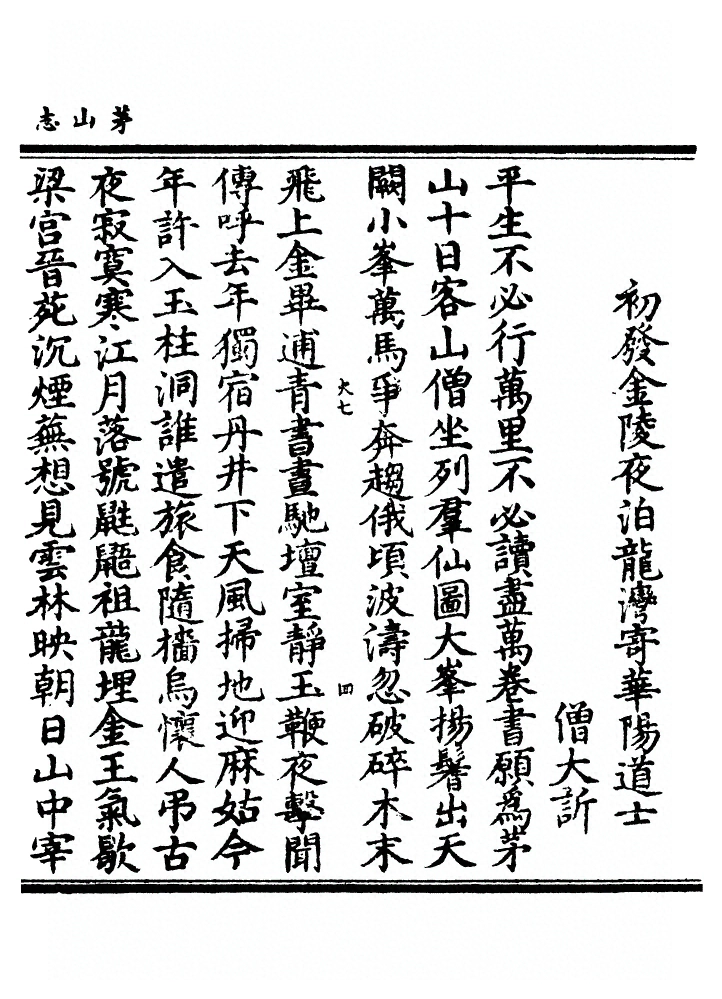 茅山志
初發金陵夜泊龍灣寄華陽道士
僧大訢
平生不必行萬里不必讀盡萬卷書願爲茅
山十日客山僧坐列羣仙圖大峯揚鬐出天
闕小峯萬馬爭奔趨俄頃波濤忽破碎木末
大七
四
飛上金畢逋青書晝馳壇室靜玉鞭夜擊聞
傳呼去年獨宿丹井下天風掃地迎麻姑今
年許入玉柱洞誰遣旅食隨檣烏懷人弔古
夜寂寞寒江月落號鼪鼯祖龍埋金王氣歇
梁宮晉苑沉煙蕪想見雲林映朝日山中宰